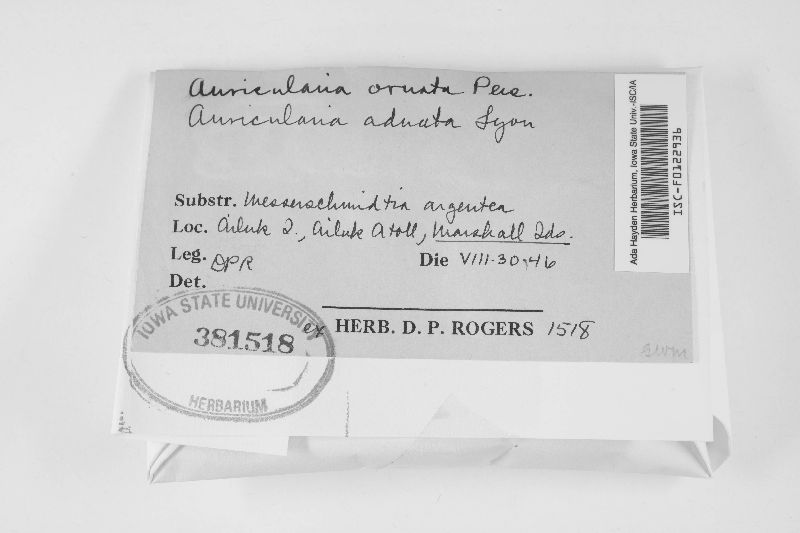 Auricularia ornata Pers.
Auricularia adnata Lyon
Substr. Messerschmidtia argentea
Loc. Ailuk I., Ailuk Atoll, Marshall Ids.
Leg. DPR
Die VIII-30-46
Det.
IOWA STATE UNIVERSITY
381518
HERBARIUM
ex HERB. D. P. ROGERS 1518
Ada Hayden Herbarium, Iowa State Univ.-ISC/IA
ISC-F0122936